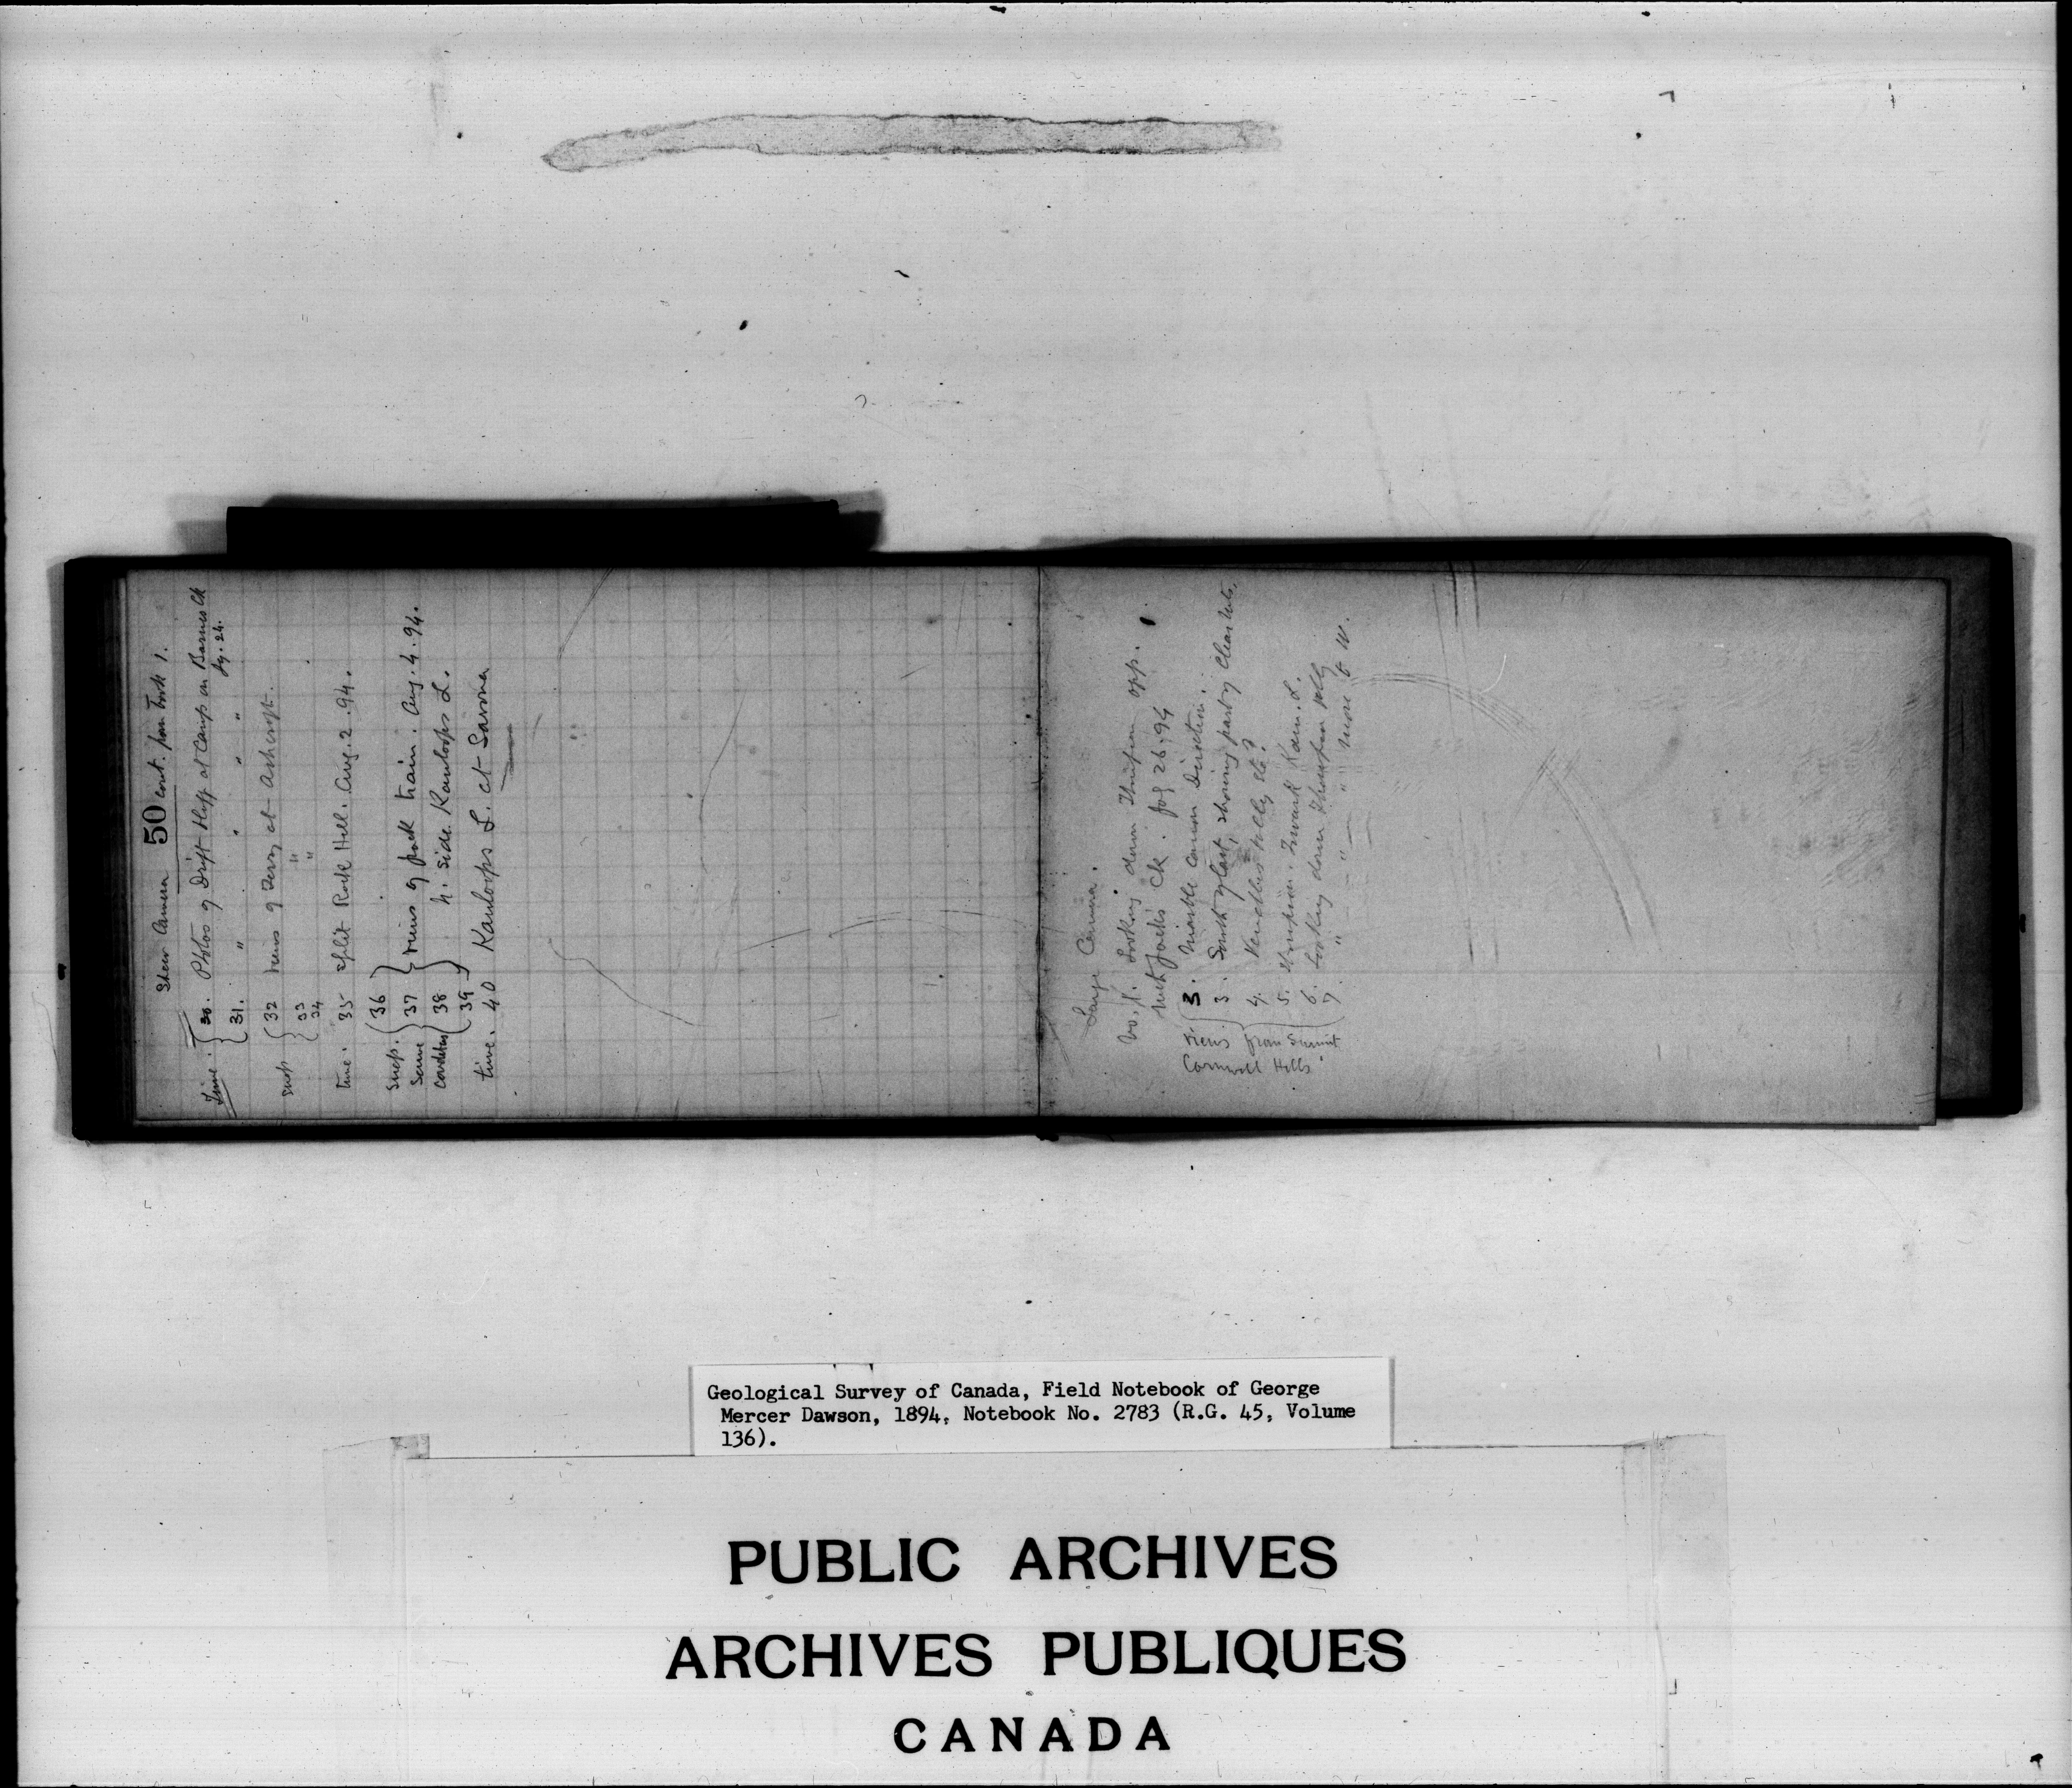 Shew Camera 50 cont. from book 1.
Time. 30. Photos of Drift Bluff at Camp on Barnes Ck
Jy. 24.
31. " " " "
snap 32 Views of Ferry at Ashcroft.
33 "
34 "
time. 35 Split Rock Hill. Aug. 2. 94.
snap. 36
same 37 views of pack train. Aug. 4. 94.
conditions 38 N. side Kamloops L.
39
time. 40 Kamloops L. at Savona
Large Camera.
No. 1. Looking down Thompson opp.
Ck. 26. 94
3. Marble Canon Direction.
3. South of last, showing part of Clear Mts.
4.
5. Kam. L.
6. Looking down Thompson Valley
7. " " " " more to W.
Views from Summit
Cornwall Hills
Geological Survey of Canada, Field Notebook of George
Mercer Dawson, 1894, Notebook No. 2783 (R.G. 45, Volume
136).
PUBLIC ARCHIVES
ARCHIVES PUBLIQUES
CANADA